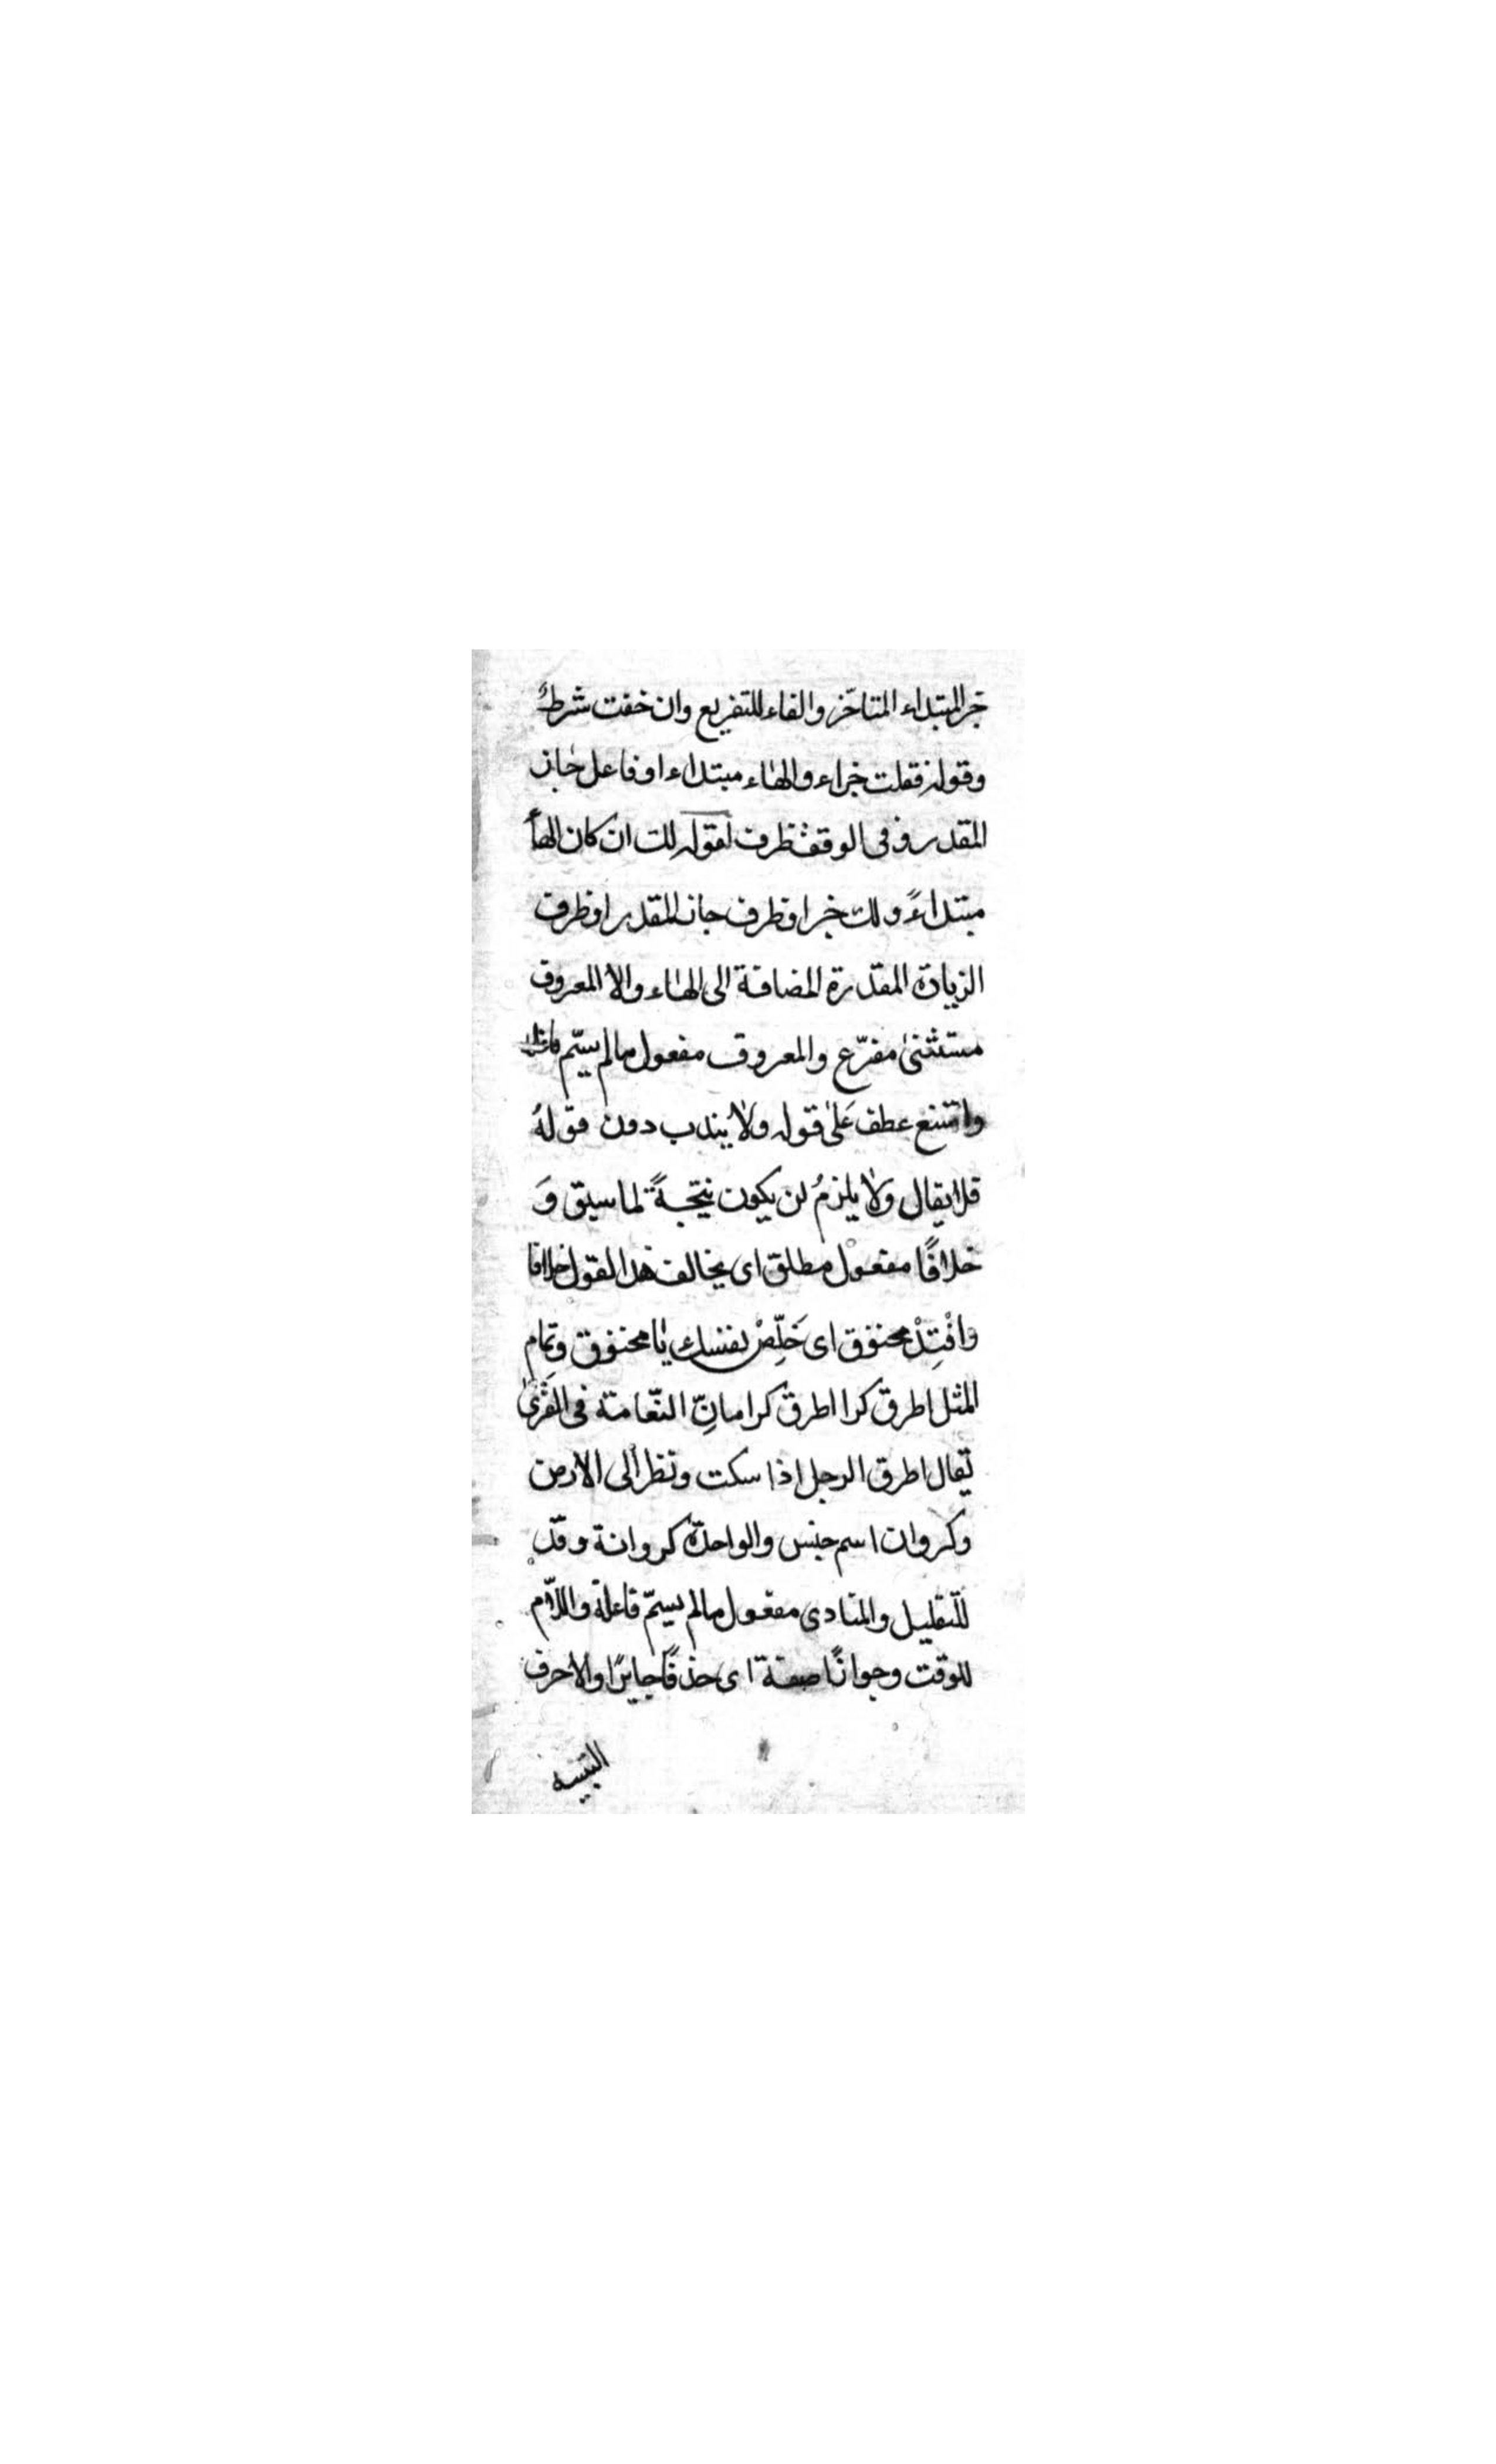 خبر المبتداء المتاخّر والفاء للتفريع وان خفت شرطً
وقوله فقلت جزاء والهاء مبتداء او فاعل جاز
المقدر وفى الوقف ظرف لقوله لك ان كان الهاءُ
مبتداءً ولك خبر او ظرف جاز المقدر او ظرف
الزيادة المقدرة المضافة الى الهاء والا المعروف
مستثنىٰ مفرّع والمعروف مفعول مالم يسمّ فاعله
وامتنع عطف عَلىٰ قوله ولا يندب دون قولهُ
فلا يقال ولا يلزمُ ان يكون نتيجةً لما سبق وَ
خلافًا مفعول مطلق اى يخالف هذا القول خلافا
وافْتِدْ مخنوق اى خَلِّصْ نفسك يا مخنوق وتمام
المثل اطرق كرا اطرق كرا مانّ النّعامة فى القُرىٰ
يقال اطرق الرجل اذا سكت ونظر الى الارض
وكروان اسم جنس والواحدة كروانة وقد
للتقليل والمنادى مفعول مالم يسمّ فاعله واللّام
للوقت وجوازًا صفة اى حذفًا جايزًا والاحرف